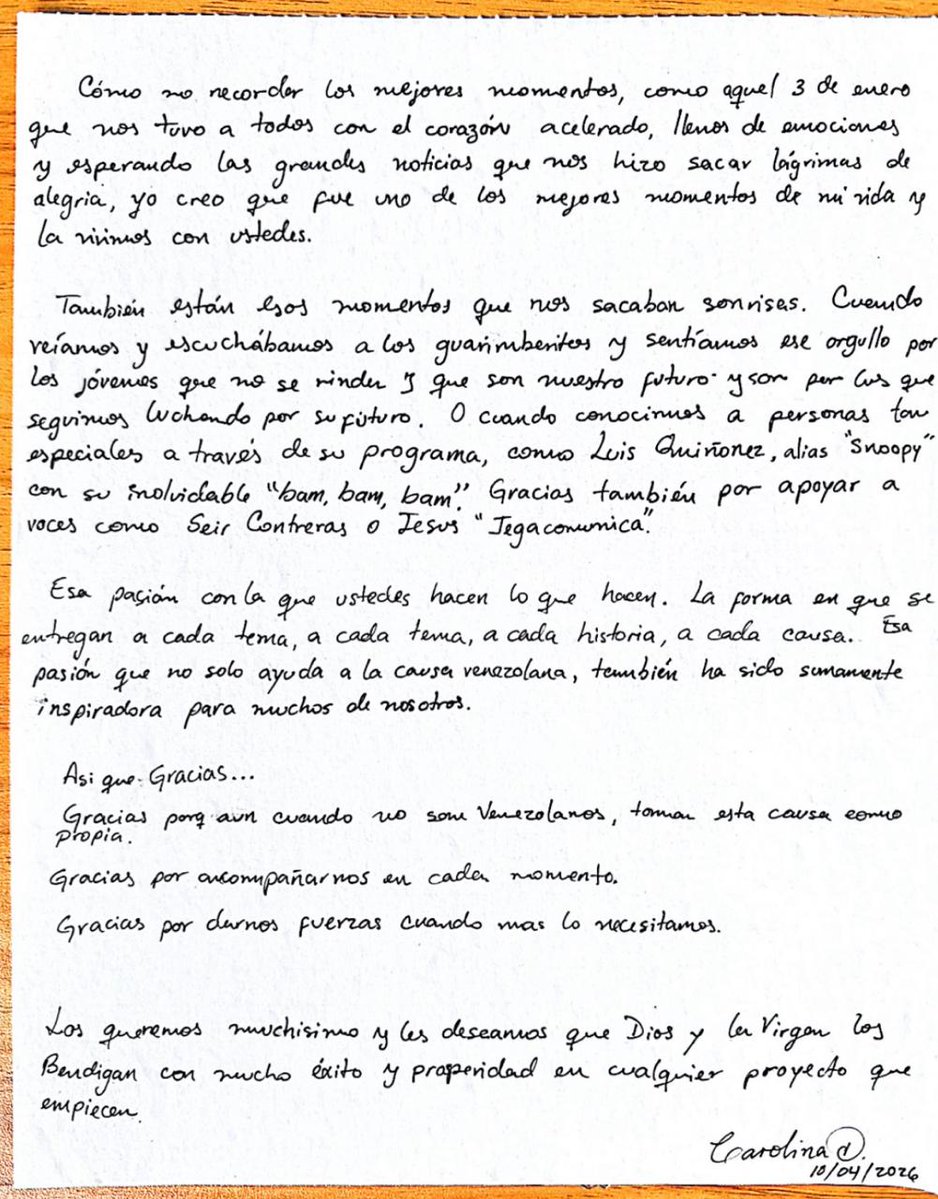 Cómo no recordar los mejores momentos, como aquel 3 de enero
que nos tuvo a todos con el corazón acelerado, llenos de emociones
y esperando las grandes noticias que nos hizo sacar lágrimas de
alegria, yo creo que fue uno de los mejores momentos de mi vida y
la vivimos con ustedes.
También están esos momentos que nos sacaban sonrisas. Cuando
veíamos y escuchábamos a los guarimberitos y sentíamos ese orgullo por
los jóvenes que no se rinden y que son nuestro futuro y son por los que
seguimos luchando por su futuro. O cuando conocimos a personas tan
especiales a través de su programa, como Luis Quiñonez, alias "Snoopy"
con su inolvidable "bam, bam, bam". Gracias también por apoyar a
voces como Seir Contreras o Jesus "Jegacomunica".
Esa pasión con la que ustedes hacen lo que hacen. La forma en que se
entregan a cada tema, a cada tema, a cada historia, a cada causa. Esa
pasión que no solo ayuda a la causa venezolana, también ha sido sumamente
inspiradora para muchos de nosotros.
Asi que Gracias...
Gracias porq aun cuando no son Venezolanos, toman esta causa como
propia.
Gracias por acompañarnos en cada momento.
Gracias por darnos fuerzas cuando mas lo necesitamos.
Los queremos muchisimo y les deseamos que Dios y la Virgen los
Bendigan con mucho éxito y properidad en cualquier proyecto que
empiecen.
Carolina D.
10/04/2026